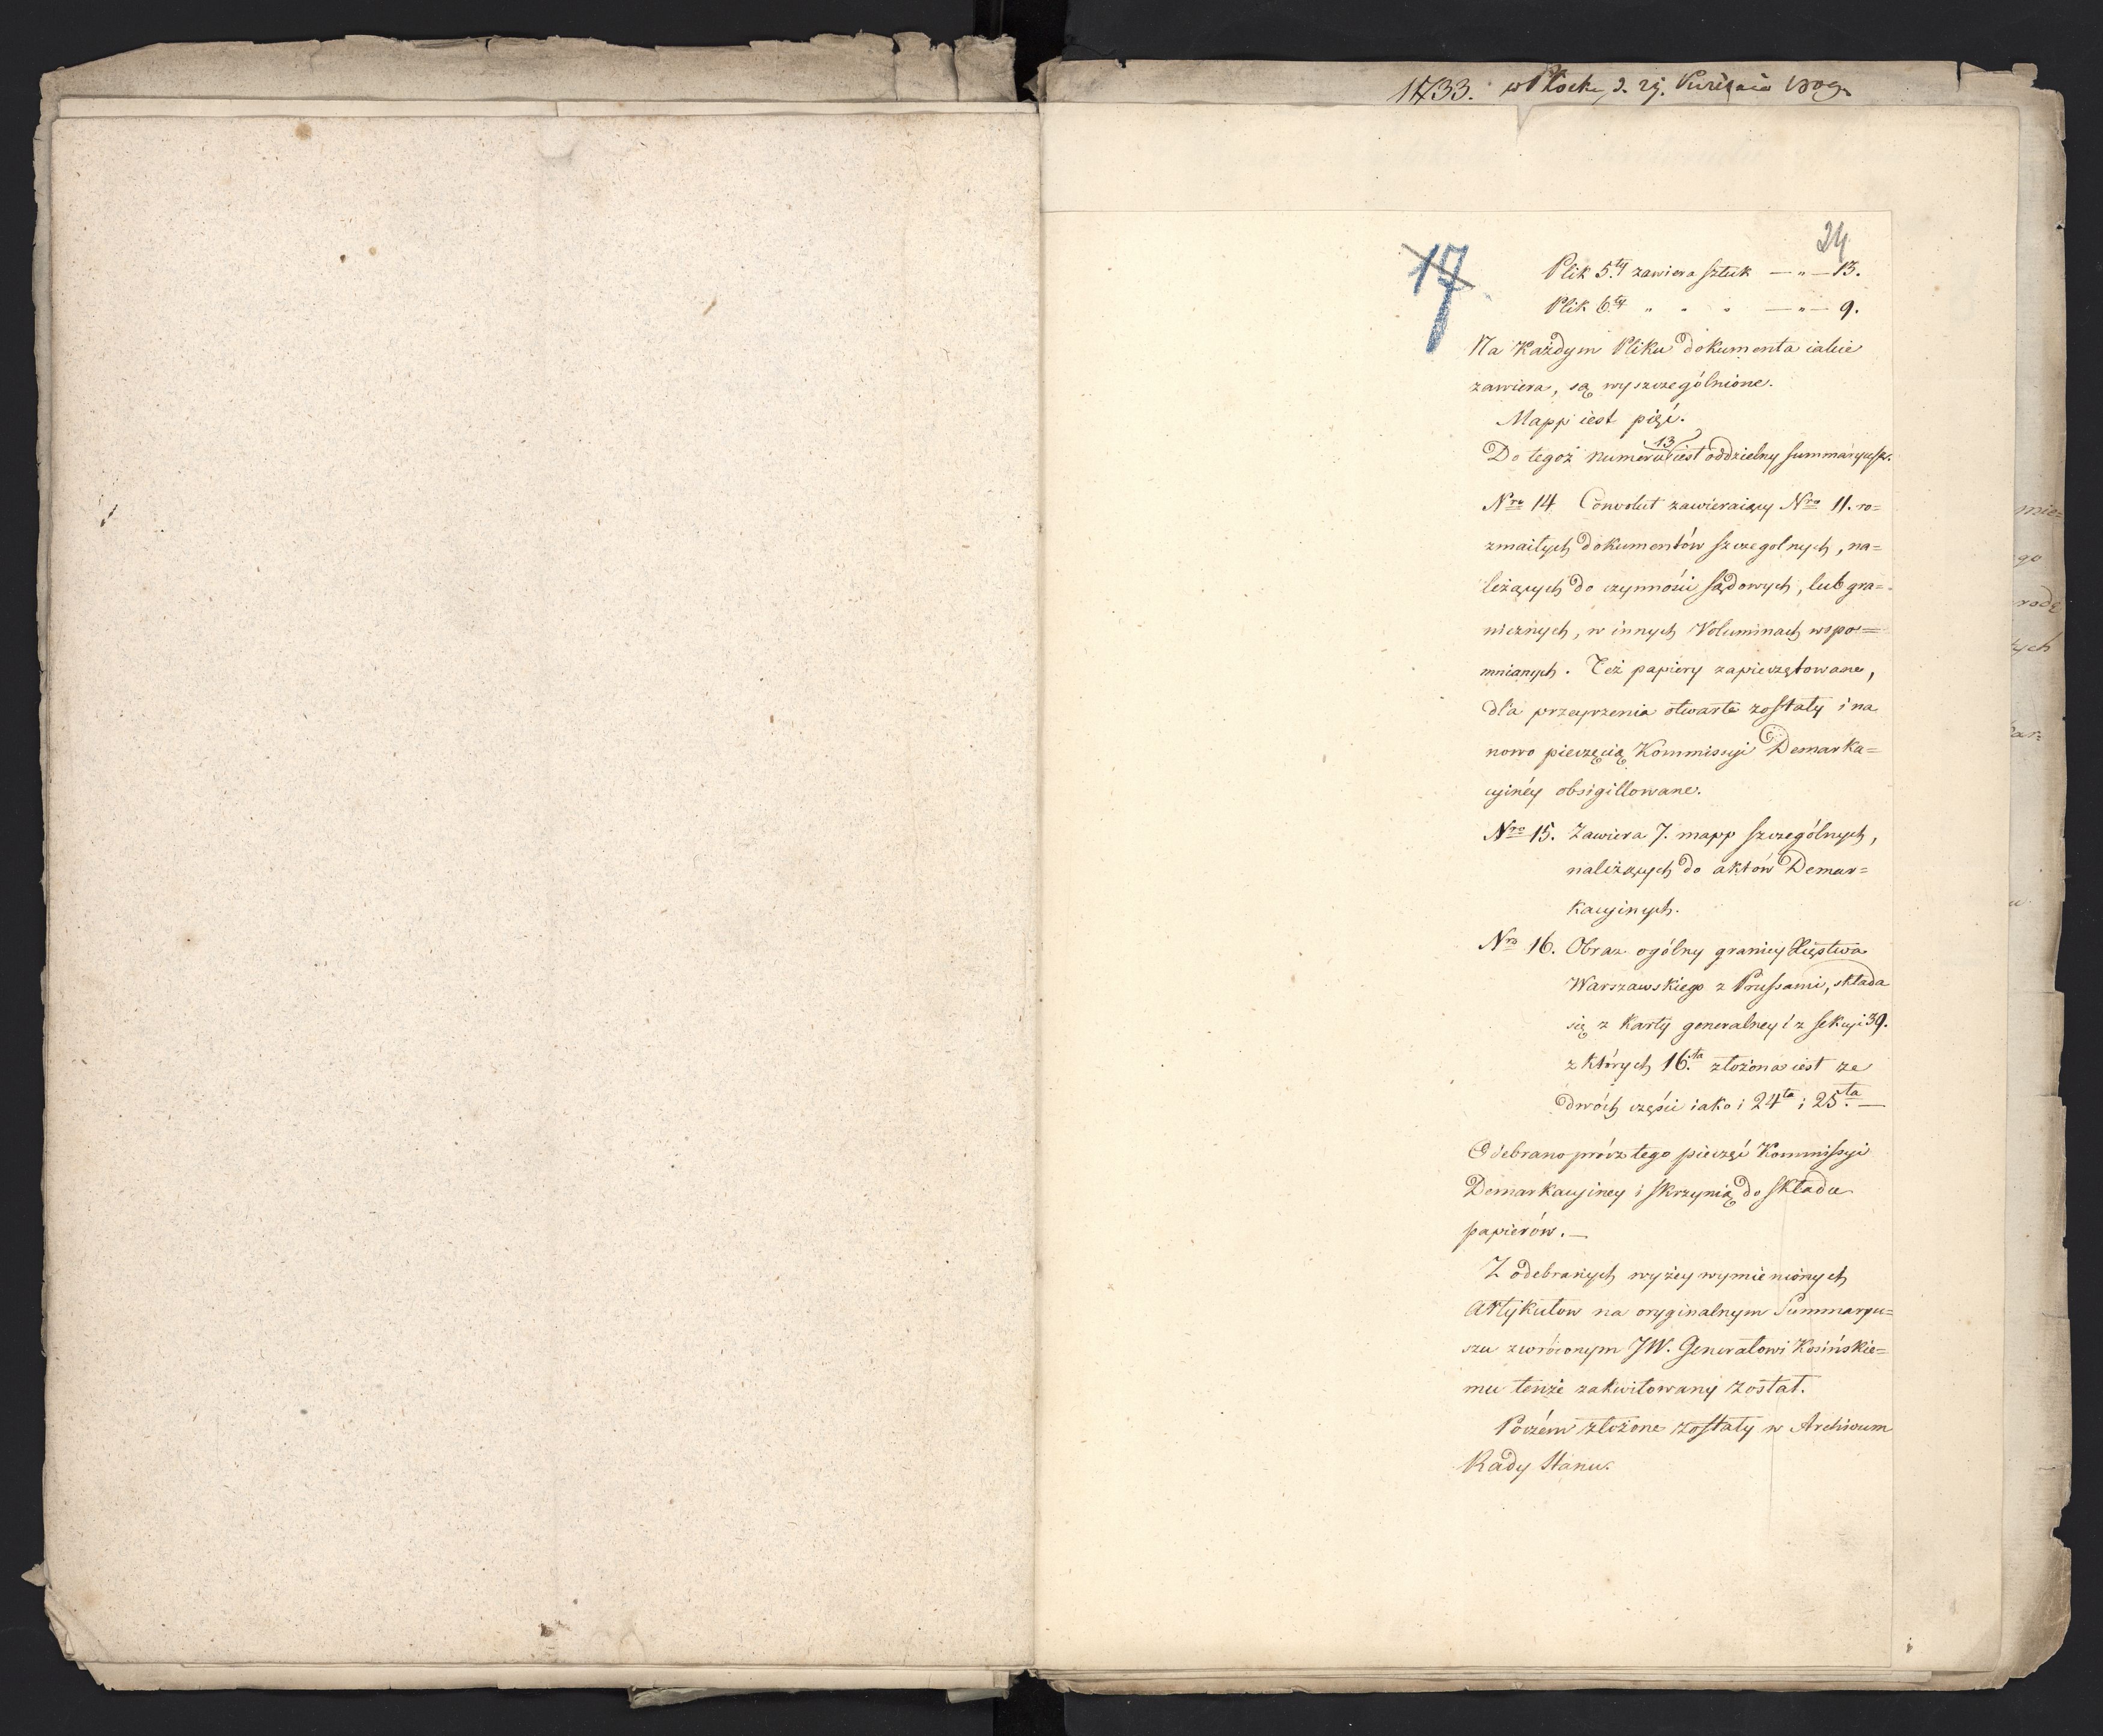 1733. w Płocku d. 29. Kwietnia 1809.
24
17
Plik 5.ty zawiera sztuk — „ — 13.
Plik 6.ty „ „ „ — „ — 9.
Na każdym Pliku dokumenta iakie
zawiera, są wyszczególnione.
Mapp iest pięć.
Do tegoż numeru 13 iest oddzielny summaryusz.
Nro 14 Convolut zawieraiący Nro 11. ro=
zmaitych dokumentów szczegolnych, na=
leżących do czynności sądowych, lub gra=
nicznych, w innych Voluminach wspo=
mnianych. Też papiery zapieczętowane,
dla przeyrzenia otwarte zostały i na
nowo pieczęcią Kommissyi Demarka=
cyinéy obsigillowane.
Nro 15. Zawiera 7. mapp szczególnych,
należących do aktów Demar=
kacyinych.
Nro 16. Obraz ogólny granicy Xięstwa
Warszawskiego z Prussami, składa
się z Karty generalney i z sekcyi 39.
z których 16.ta złożona iest ze
dwóch części iako i 24ta i 25.ta —
Odebrano prócz tego pieczęć Kommissyi
Demarkacyiney i skrzynią do składu
papierów. —
Z odebranych wyżey wymienionych
Artykułow na oryginalnym Summaryu=
szu zwróconym JW. Generałowi Kosińskie=
mu tenże zakwitowany został.
Poczém złożone zostały w Archivum
Rady Stanu.